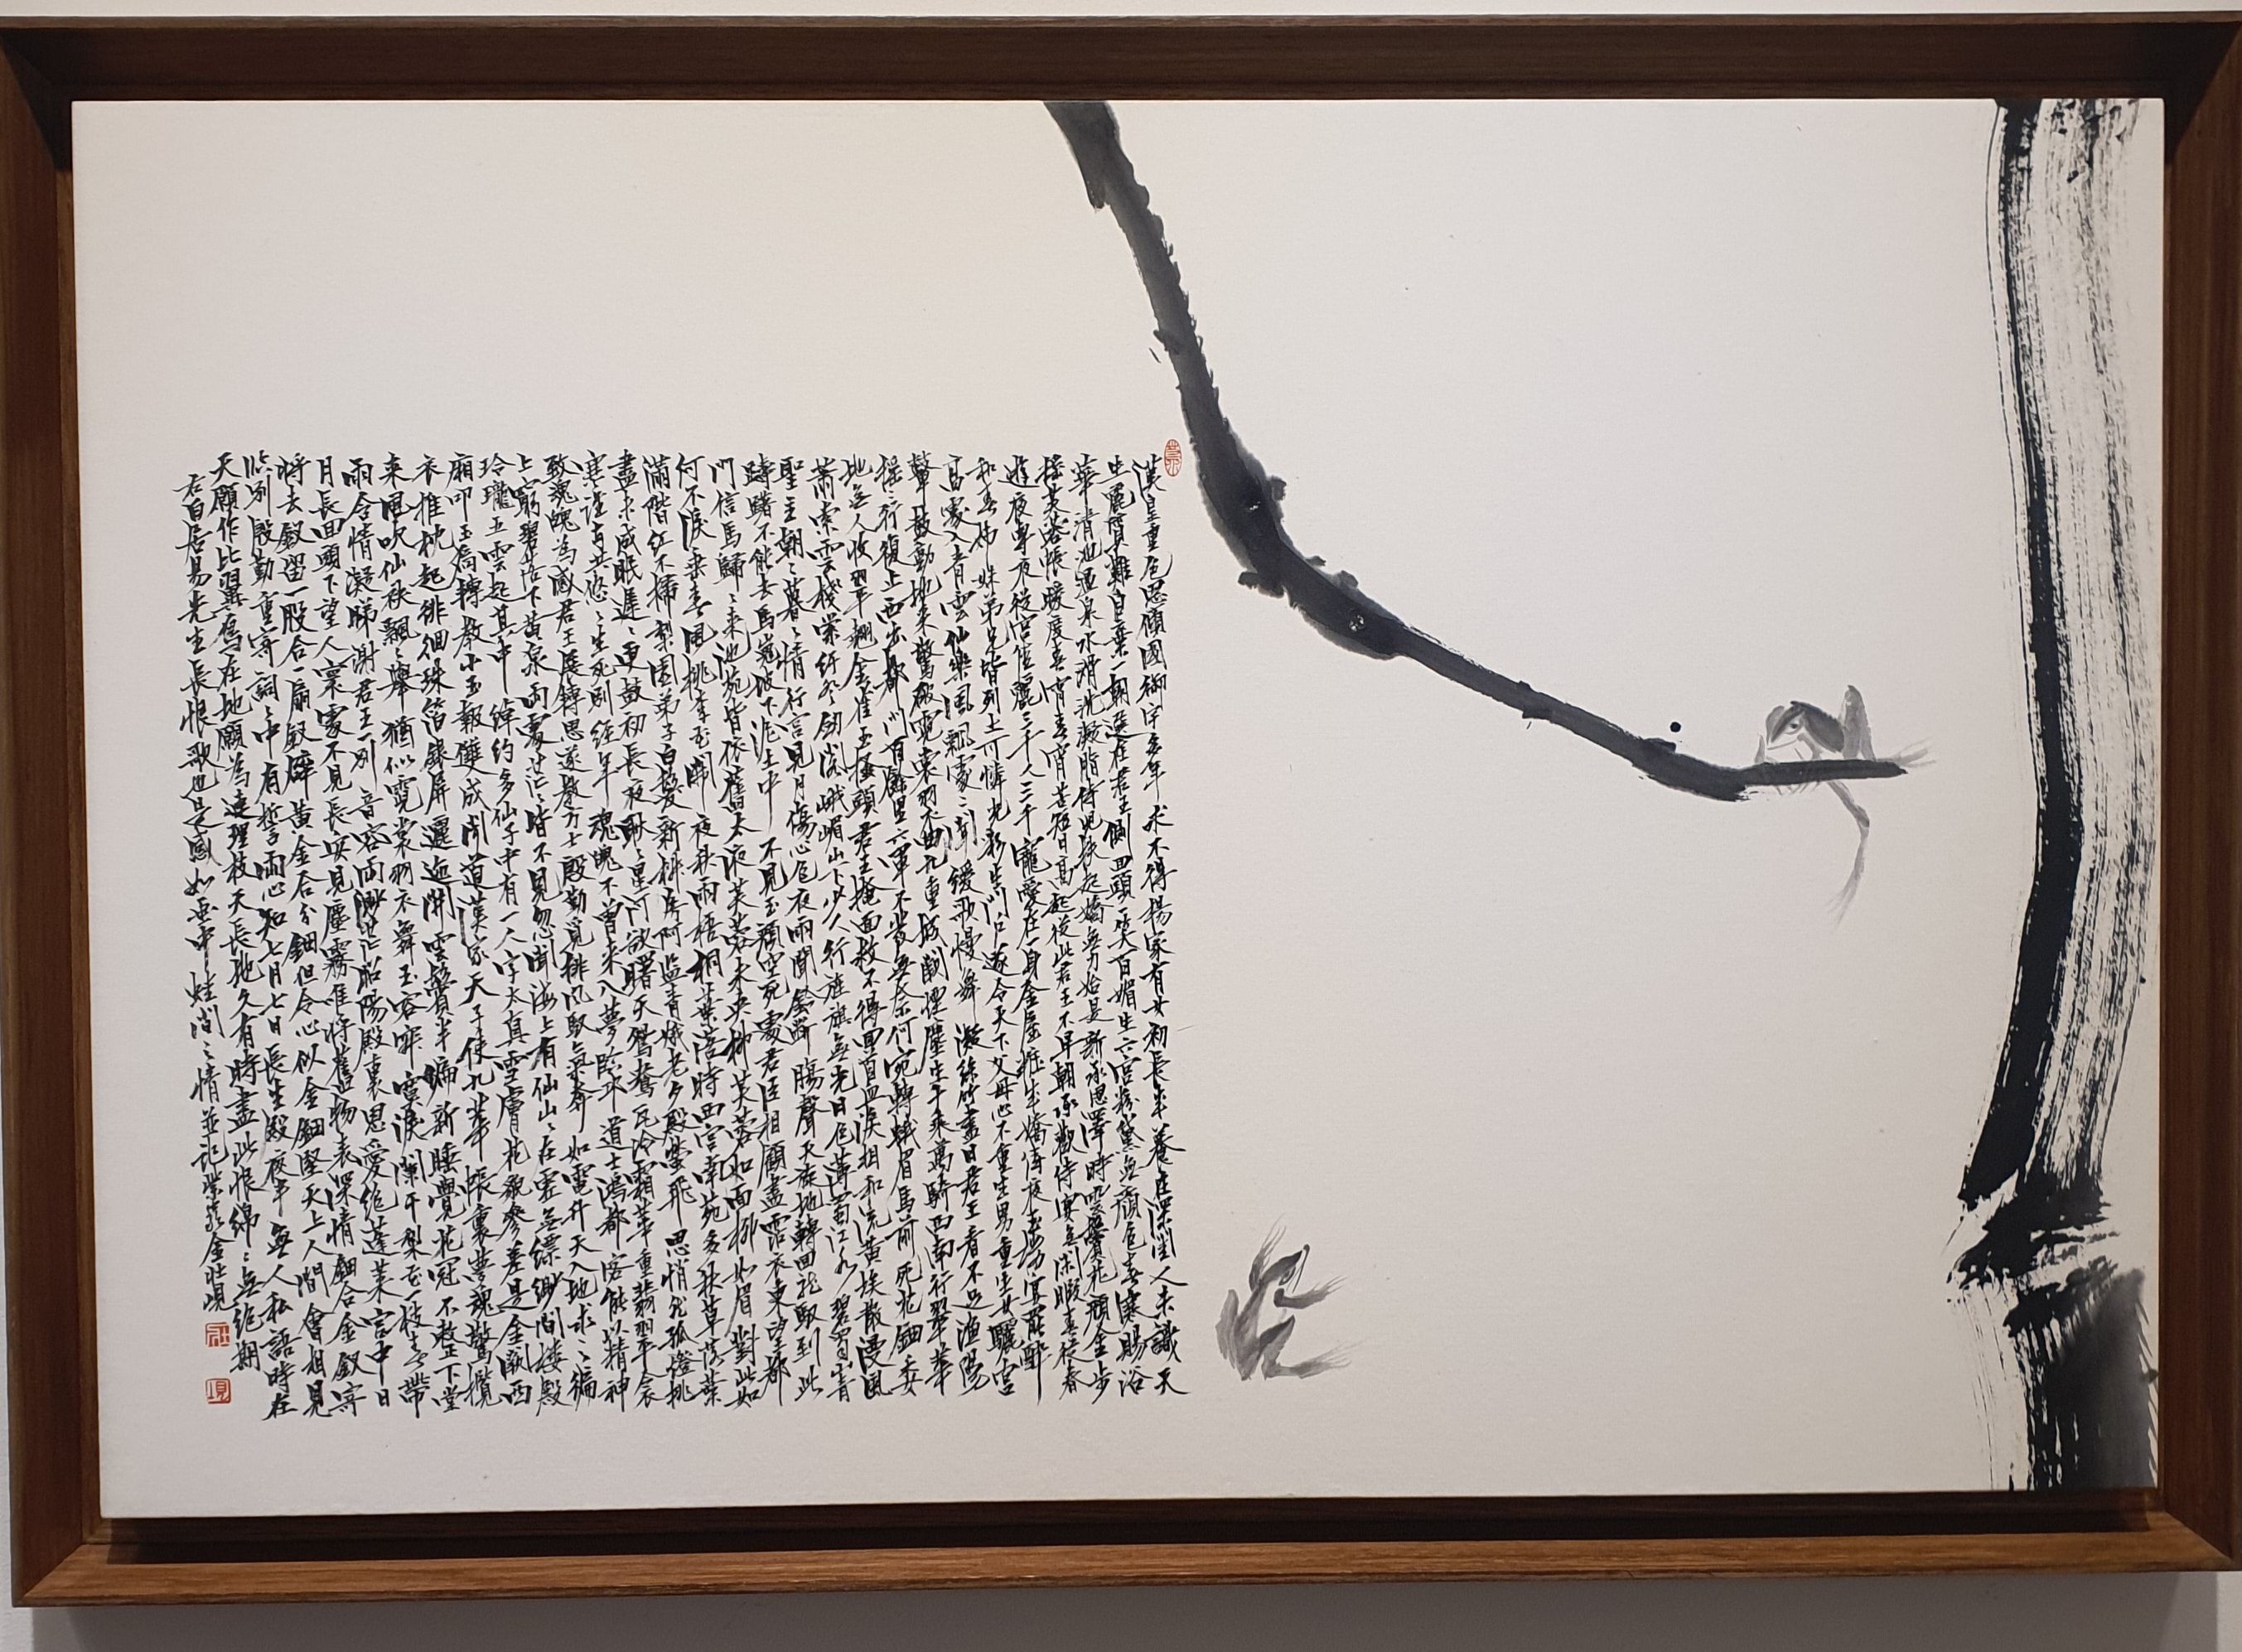 漢皇重色思傾國御宇多年求不得楊家有女初長成養在深閨人未識天
生麗質難自棄一朝選在君王側回頭一笑百媚生六宮粉黛無顏色春寒賜浴
華清池溫泉水滑洗凝脂侍兒扶起嬌無力始是新承恩澤時雲鬢花顏金步
搖芙蓉帳暖度春宵春宵苦短日高起從此君王不早朝承歡侍宴無閑暇春從春
遊夜專夜後宮佳麗三千人三千寵愛在一身金屋粧成嬌侍夜玉樓宴罷醉
和春姊妹弟兄皆列土可憐光彩生門戶遂令天下父母心不重生男重生女驪宮
高處入青雲仙樂風飄處〻聞緩歌慢舞凝絲竹盡日君王看不足漁陽
鼙鼓動地來驚破霓裳羽衣曲九重城闕煙塵生千乘萬騎西南行翠華
搖〻行復止西出都門百餘里六軍不發無奈何宛轉蛾眉馬前死花鈿委
地無人收翠翹金雀玉搔頭君王掩面救不得回首血淚相和流黃埃散漫風
蕭索雲棧縈紆登劍閣峨嵋山下少人行旌旗無光日色薄蜀江水碧蜀山青
聖主朝〻暮〻情行宮見月傷心色夜雨聞鈴斷腸聲天旋地轉回龍馭到此
躊躇不能去馬嵬坡下泥土中不見玉顏空死處君臣相顧盡霑衣東望都
門信馬歸〻來池苑皆依舊太液芙蓉未央柳芙蓉如面柳如眉對此如
何不淚垂春風桃李花開夜秋雨梧桐葉落時西宮南苑多秋草落葉
滿階紅不掃梨園弟子白髮新椒房阿監青娥老夕殿螢飛思悄然孤燈挑
盡未成眠遲〻更鼓初長夜耿〻星河欲曙天鴛鴦瓦冷霜華重翡翠衾
寒誰與共悠〻生死別經年魂魄不曾來入夢臨邛道士鴻都客能以精神
致魂魄為感君王展轉思遂教方士殷勤覓排風馭氣奔如電升天入地求之徧
上窮碧落下黃泉兩處茫〻皆不見忽聞海上有仙山〻在虛無縹緲間樓殿
玲瓏五雲起其中綽約多仙子中有一人字太真雪膚花貌參差是金闕西
廂叩玉扃轉教小玉報雙成聞道漢家天子使九華帳裏夢魂驚攬
衣推枕起徘徊珠箔銀屏邐迤開雲鬢半偏新睡覺花冠不整下堂
來風吹仙袂飄〻舉猶似霓裳羽衣舞玉容寂寞淚闌干梨花一枝春帶
雨含情凝睇謝君王一別音容兩渺茫昭陽殿裏恩愛絕蓬萊宮中日
月長回頭下望人寰處不見長安見塵霧唯將舊物表深情鈿合金釵寄
將去釵留一股合一扇釵擘黃金合分鈿但令心似金鈿堅天上人間會相見
臨別殷勤重寄詞〻中有誓兩心知七月七日長生殿夜半無人私語時在
天願作比翼鳥在地願為連理枝天長地久有時盡此恨綿〻無絕期
右白居易先生長恨歌也是感如無中蛙間之情並記